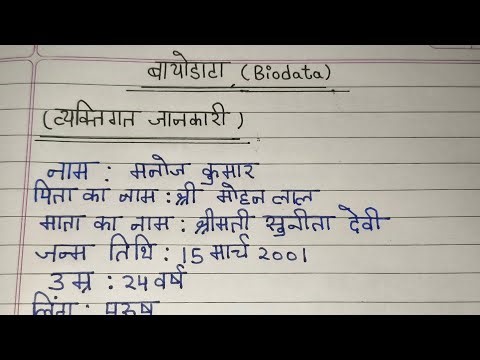 बायोडाटा (Biodata)
(व्यक्तिगत जानकारी)
नाम : मनोज कुमार
पिता का नाम : श्री मोहन लाल
माता का नाम : श्रीमती सुनीता देवी
जन्म तिथि : 15 मार्च 2001
उम्र : 24 वर्ष
लिंग : पुरुष